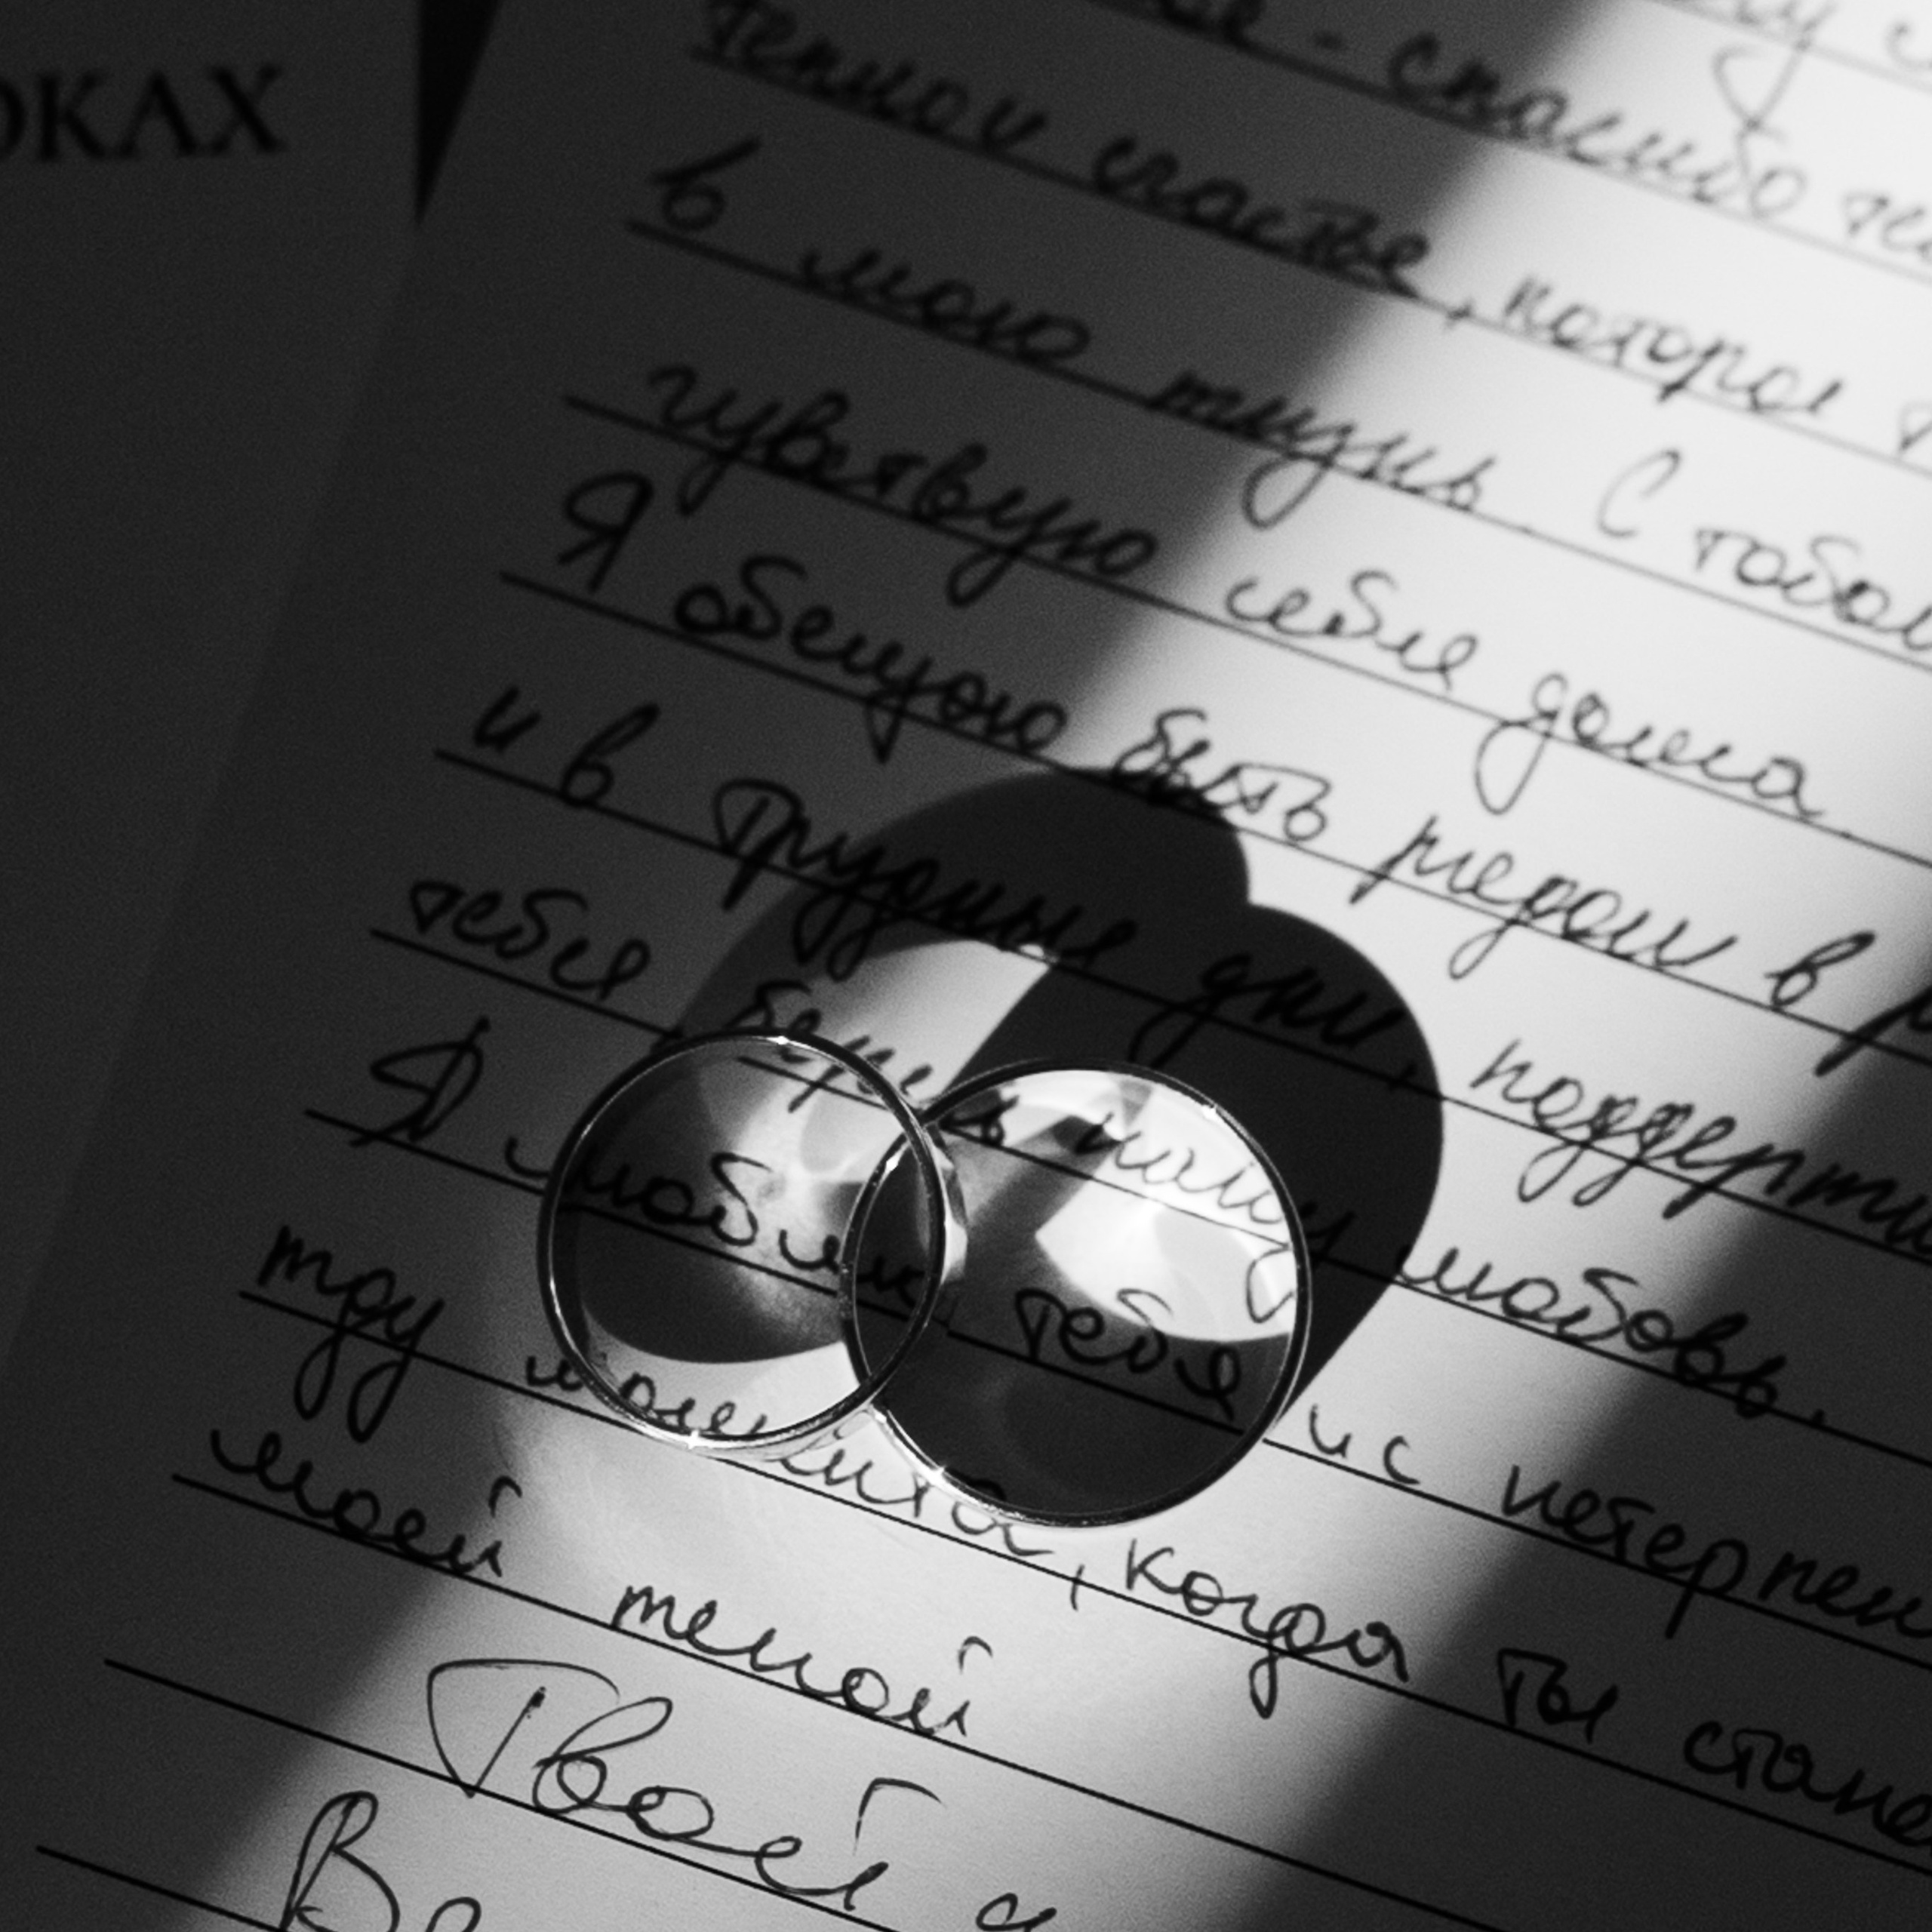 ОКАХ
спасибо
теплой счастье, которое
в мою жизнь. С тобой
чувствую себя дома.
Я обещаю быть рядом в
и в трудные дни, поддержи
тебя беречь нашу любовь.
Я люблю тебя и с нетерпен
жду момента, когда ты стане
моей женой
Твоей
Ве